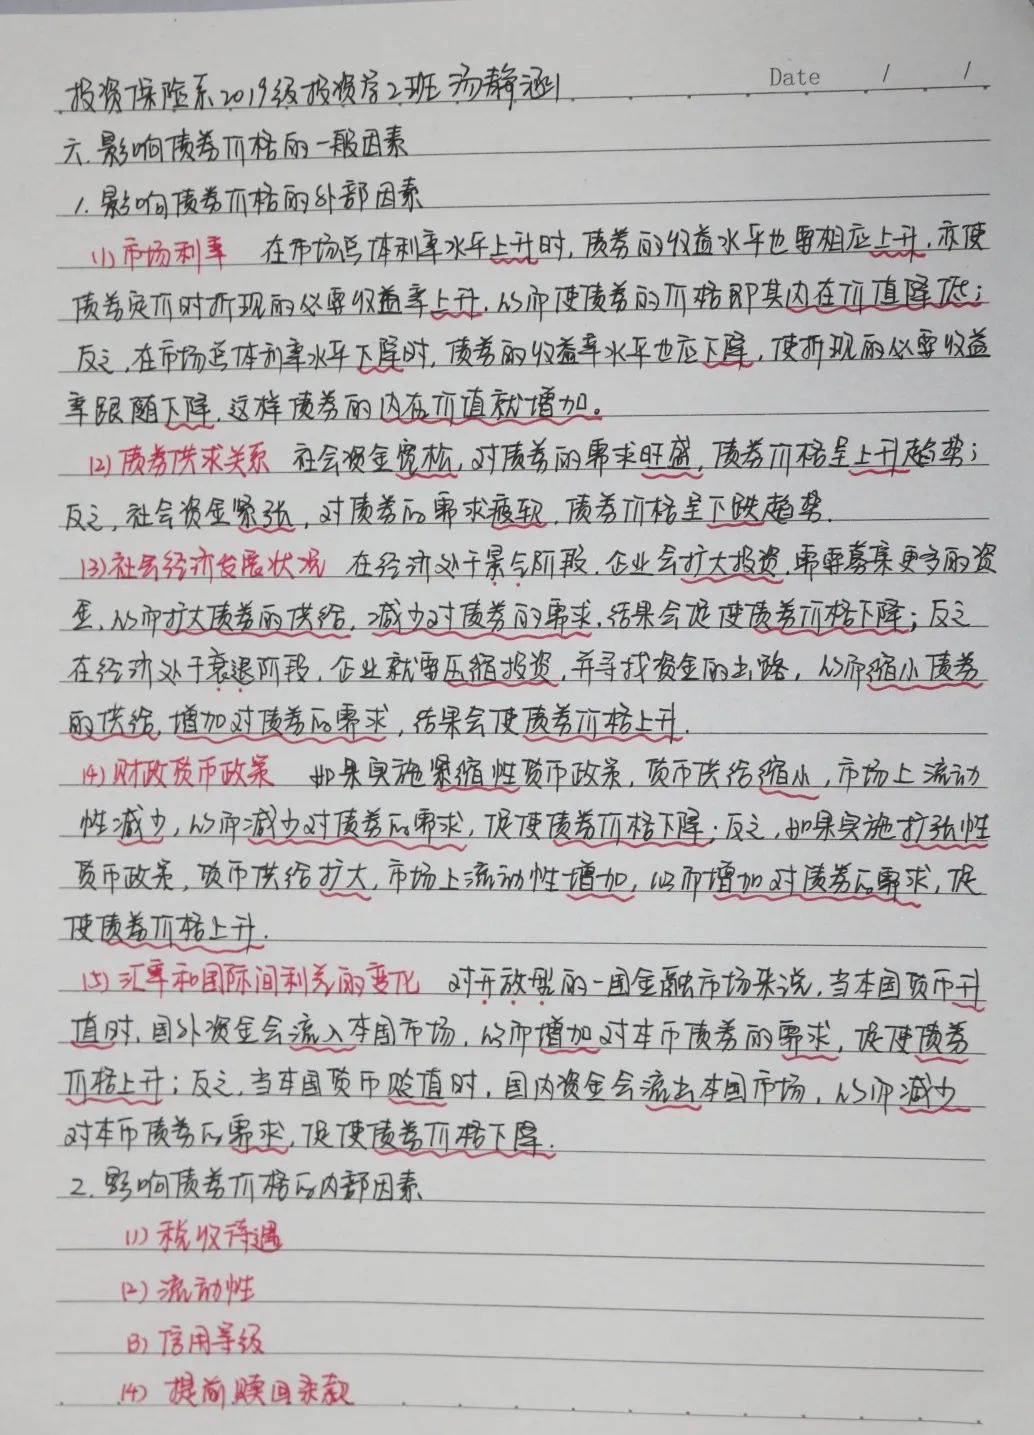 Date / /
投资保险系2019级投资学2班 汤静涵
六.影响债券价格的一般因素
1.影响债券价格的外部因素
(1)市场利率 在市场总体利率水平上升时,债券的收益水平也要相应上升,亦使
债券定价时折现的必要收益率上升,从而使债券的价格即其内在价值降低;
反之,在市场总体利率水平下降时,债券的收益率水平也应下降,使折现的必要收益
率跟随下降,这样债券的内在价值就增加。
(2)债券供求关系 社会资金宽松,对债券的需求旺盛,债券价格呈上升趋势;
反之,社会资金紧张,对债券的需求疲软,债券价格呈下跌趋势.
(3)社会经济发展状况 在经济处于景气阶段,企业会扩大投资,需要募集更多的资
金,从而扩大债券的供给,减少对债券的需求,结果会促使债券价格下降;反之
在经济处于衰退阶段,企业就需压缩投资,并寻找资金的出路,从而缩小债券
的供给,增加对债券的需求,结果会使债券价格上升.
(4)财政货币政策 如果实施紧缩性货币政策,货币供给缩小,市场上流动
性减少,从而减少对债券的需求,促使债券价格下降;反之,如果实施扩张性
货币政策,货币供给扩大,市场上流动性增加,从而增加对债券的需求,促
使债券价格上升.
(5)汇率和国际间利差的变化 对开放型的一国金融市场来说,当本国货币升
值时,国外资金会流入本国市场,从而增加对本币债券的需求,促使债券
价格上升;反之,当本国货币贬值时,国内资金会流出本国市场,从而减少
对本币债券的需求,促使债券价格下降.
2.影响债券价格的内部因素
(1)税收待遇
(2)流动性
(3)信用等级
(4)提前赎回条款